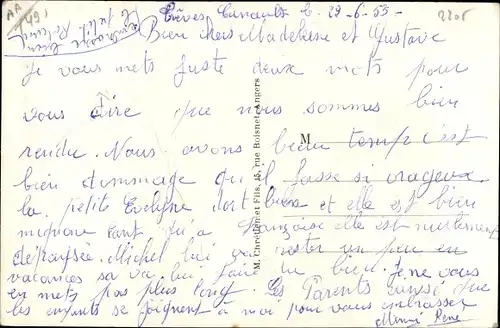 AA
49
Embrasser bien
le petit
Trèves Cunault le 29-6-53
2205
Bien chers Madeleine et Gustave
Je vous mets juste deux mots pour
vous dire que nous sommes bien
rendu. Nous avons beau temps c'est
bien dommage qu'il fasse si orageux
la petite Evelyne dort bien et elle est bien
mignone tant qu'à Françoise elle est nullement
dépaysée. Michel lui va rester un peu en
vacances sa va lui faire du bien. Je ne vous
en mets pas plus long. Les Parents ainsi que
les enfants se joignent à moi pour vous embrasser
Mimi René
M
M. Chrétien et Fils, 15, rue Boisnet-Angers